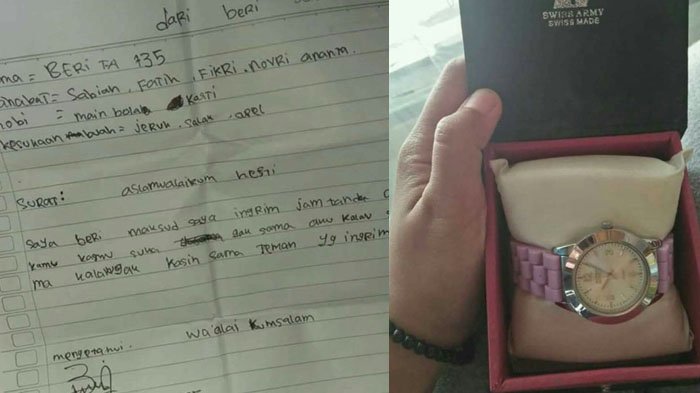 dari beri
ma = BERI TA 135
anabat = Sabiah, Fatih, Fikri, novri ananta.
hobi = main bola Kasti
kesukaan buah = jeruk, salak, apel
SURAT: aslamualaikum hesti
saya beri maksud saya ingrim jam tanda
kamu kasmu suka gak sama aku kalau
ma kalaw gak kasih sama teman yg ingrim
wa'alai kumsalam
mengetahui.
SWISS ARMY
SWISS MADE